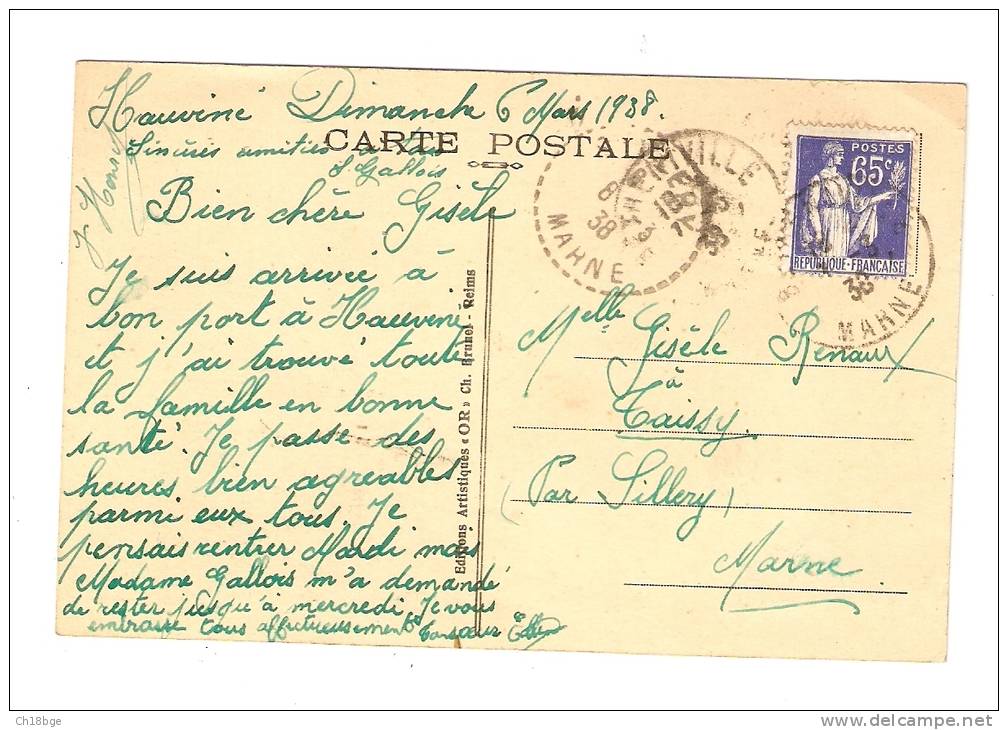 Hauviné Dimanche 6 Mars 1938.
CARTE POSTALE
Sincères amitiés
S. Gallois
Bien chère Gisèle
Je suis arrivée à
bon port à Hauviné
et j'ai trouvé toute
la famille en bonne
santé. Je passe des
heures bien agreables
parmi eux tous. Je
pensais rentrer Mardi mais
Madame Gallois m'a demandé
de rester jusqu'à mercredi. Je vous
embrasse tous affectueusement Ta sœur
Editions Artistiques « OR » Ch. Brunel - Reims
POSTES
65c
REPUBLIQUE-FRANÇAISE
8
38
MARNE
MARNE
38
Melle Gisèle Renaux
à
Taissy
(Par Sillery)
Marne.
Ch18bge
delcampe.net